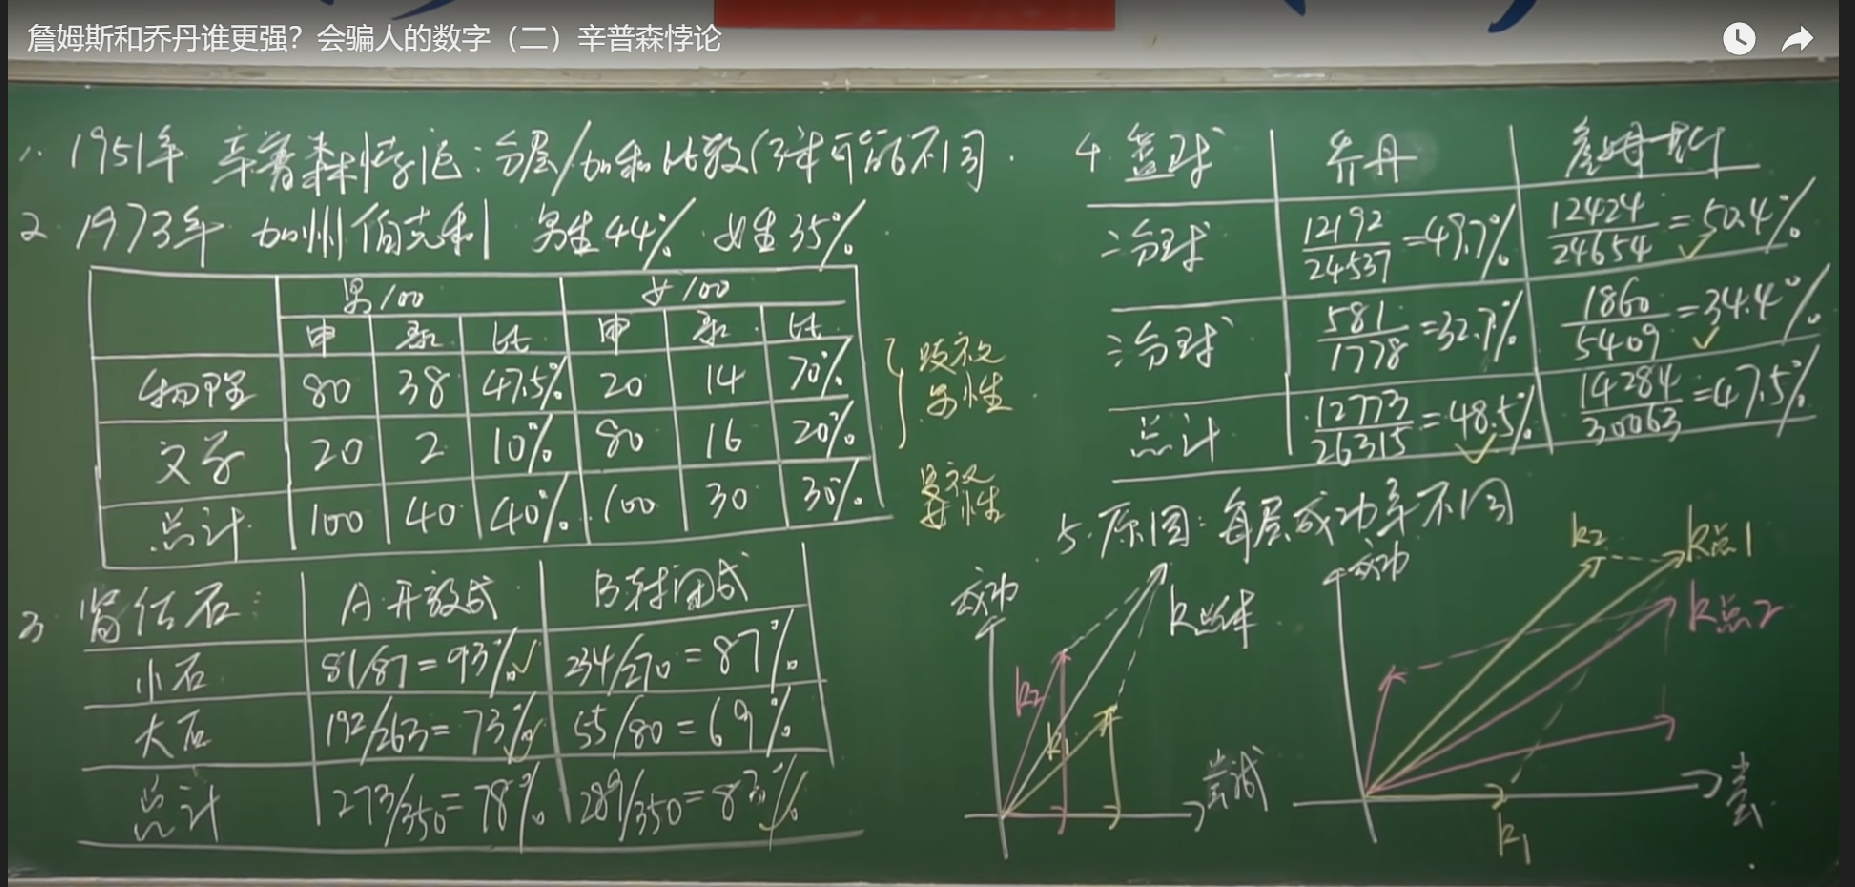 詹姆斯和乔丹谁更强？会骗人的数字（二）辛普森悖论
1. 1951年 辛普森悖论：分层/加和比较（?)
2. 1973年 加州伯克利 男生44% 女生35%
男100 女100
申 录 比 申 录 比
物理 80 38 47.5% 20 14 70%
文学 20 2 10% 80 16 20%
总计 100 40 40% 100 30 30%
歧视
男性
歧视
女性
3. 肾结石：A 开放式 B 封闭式
小石 81/87=93%✓ 234/270=87%
大石 192/263=73%✓ 55/80=69%
总计 273/350=78% 289/350=83%✓
4. 篮球 乔丹 詹姆斯
二分球 12192/24537=49.7% 12424/24654=50.4%✓
三分球 581/1778=32.7% 1860/5409=34.4%✓
总计 12773/26315=48.5%✓ 14284/30063=47.5%
5. 原因：每层成功率不同
成功 k2 k1 k总体 尝试
成功 k2 k总1 k总2 k1 尝